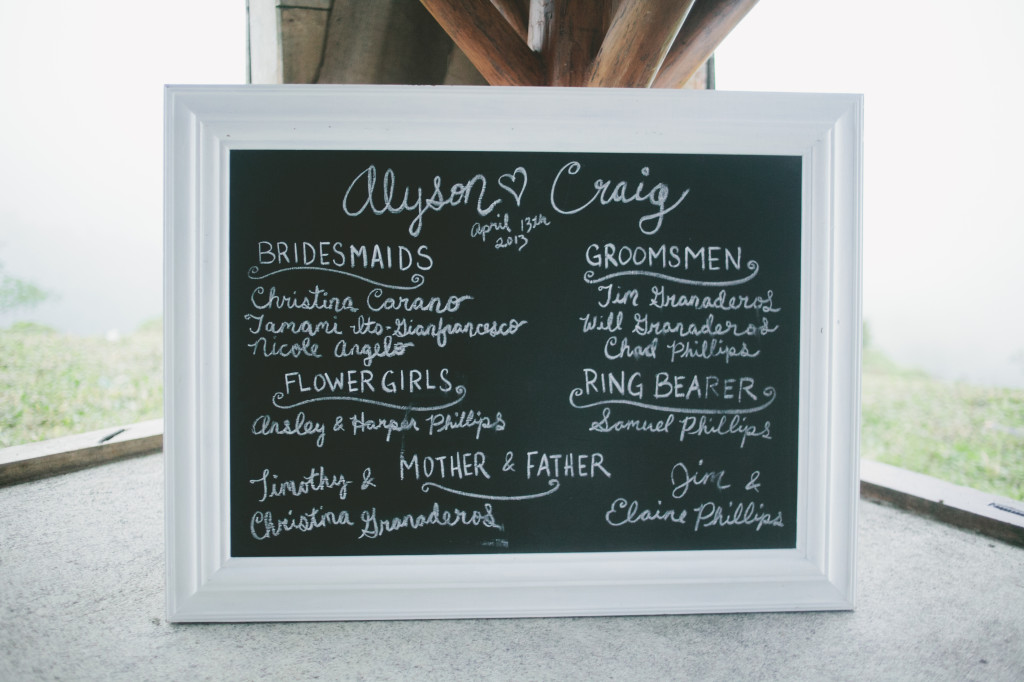 Alyson ♡ Craig
April 13th
2013
BRIDESMAIDS
Christina Carano
Tamami Ito-Gianfrancesco
Nicole Angelo
GROOMSMEN
Tim Granaderos
Will Granaderos
Chad Phillips
FLOWER GIRLS
Ansley & Harper Phillips
RING BEARER
Samuel Phillips
MOTHER & FATHER
Timothy &
Christina Granaderos
Jim &
Elaine Phillips